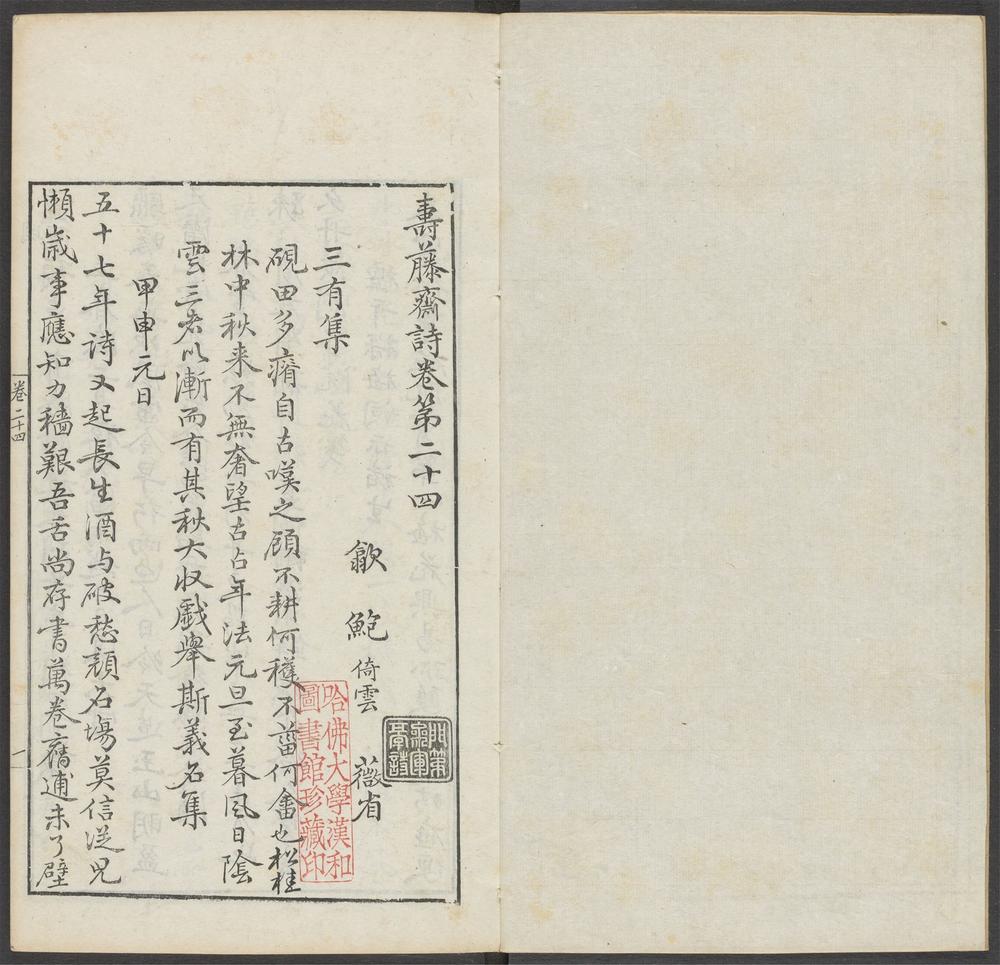 壽藤齋詩卷第二十四
歙 鮑 倚雲 薇省
三有集
硯田多瘠自古嘆之顧不耕何穫不菑何畬也松桂
林中秋来不無奢望古占年法元旦至暮風日陰
雲三者以漸而有其秋大収戲舉斯義名集
甲申元日
五十七年詩又起長生酒与破愁顔名塲莫信逆兒
懶歳事應知力穡艱吾舌尚存書萬卷舊逋未了壁
卷二十四
一
哈佛大學漢和
圖書館珍藏印